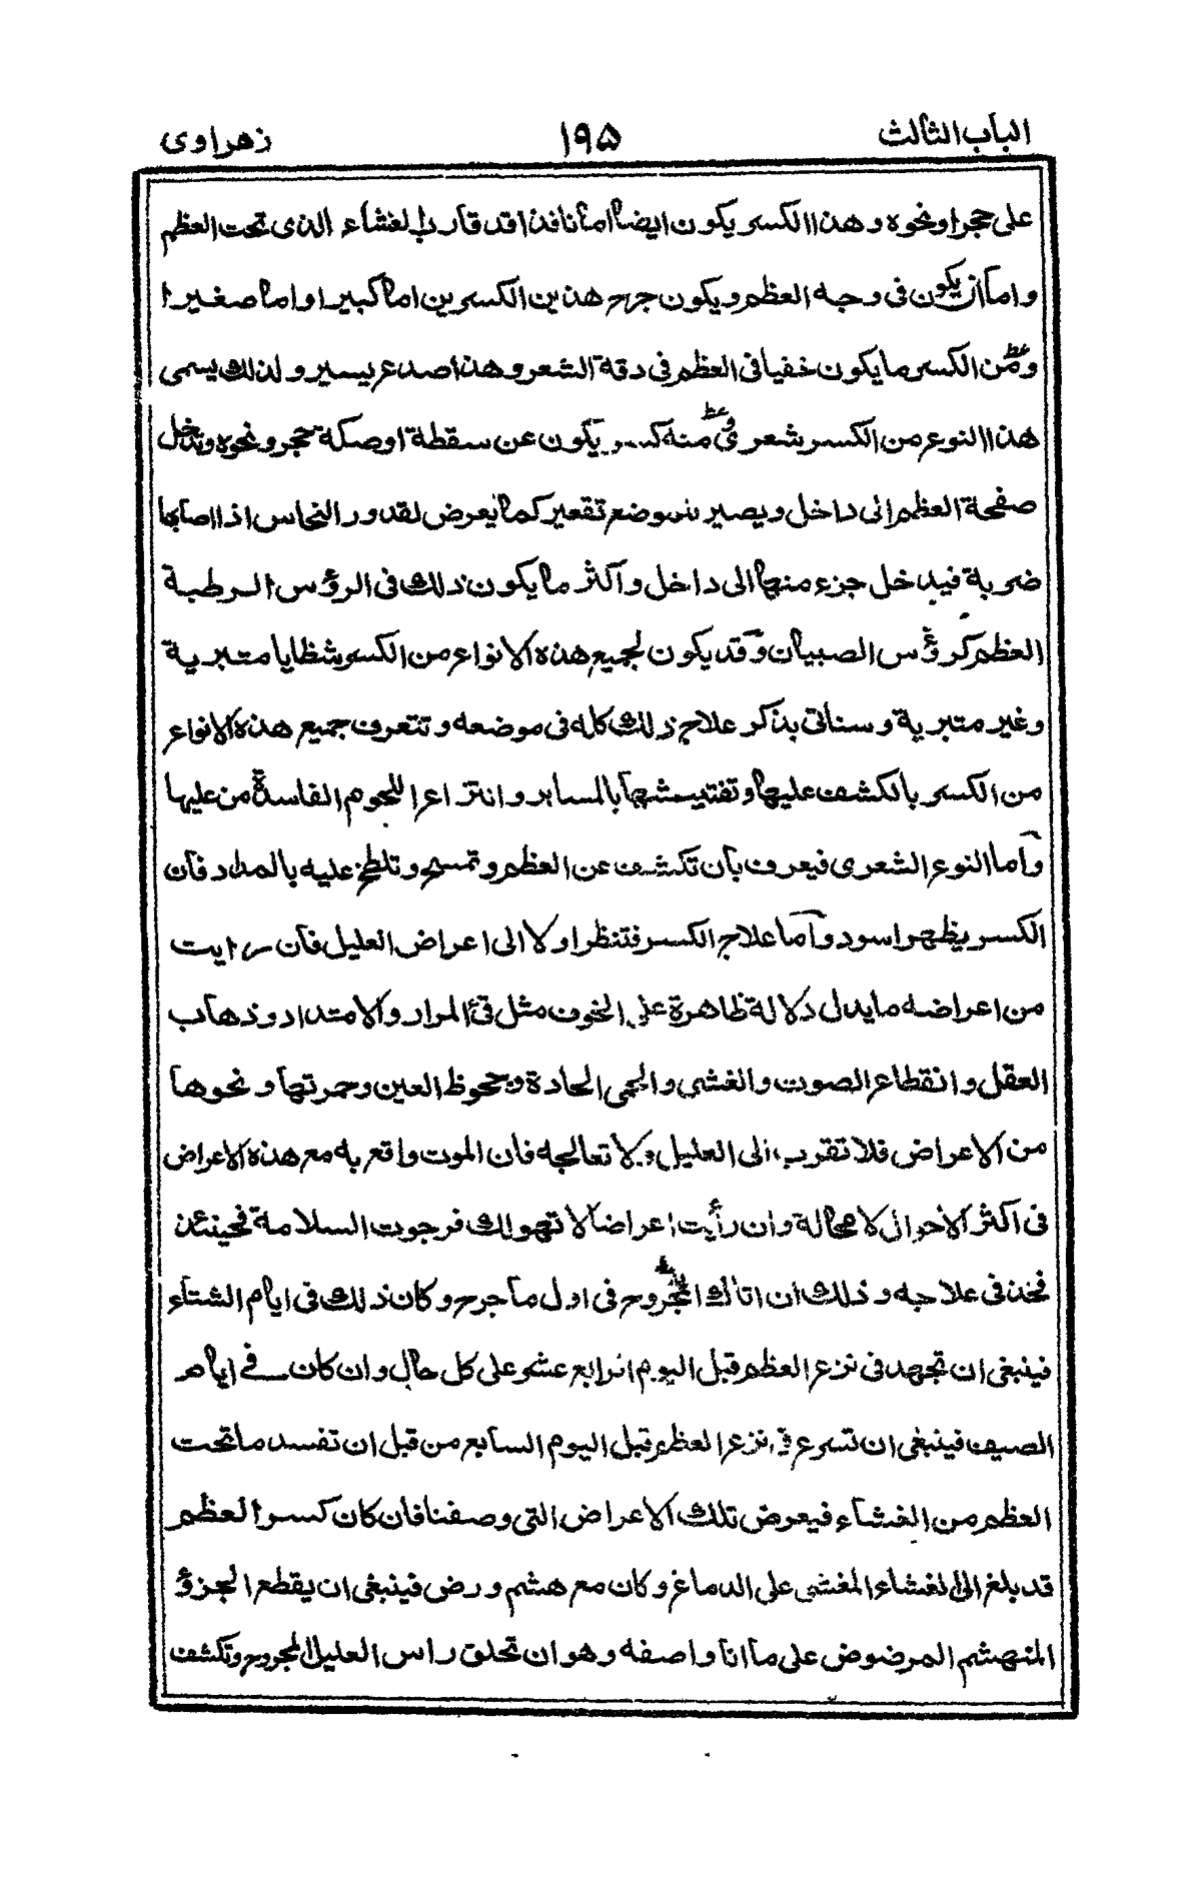 الباب الثالث ١٩٥ زهراوی
على حجر او نحوه وهذا الكسر يكون ايضا اما نافذا قد قارب الغشاء الذى تحت العظم
واما ان يكون فى وجه العظم ويكون جرح هذين الكسرين اما كبيرا او اما صغيرا
ومن الكسر ما يكون خفيا فى العظم فى دقة الشعر وهذا صدع يسير ولذلك يسمى
هذا النوع من الكسر شعرى ومنه كسر يكون عن سقطة او صكة حجر ونحوه وتدخل
صفحة العظم الى داخل ويصير للموضع تقعير كما يعرض لقدور النحاس اذا اصابها
ضربة فيدخل جزء منها الى داخل واكثر ما يكون ذلك فى الرؤس الرطبة
العظم كرؤس الصبيان وقد يكون لجميع هذه الانواع من الكسر شظايا متبرية
وغير متبرية وسناتى بذكر علاج ذلك كله فى موضعه وتتعرف جميع هذه الانواع
من الكسر بالكشف عليها وتفتيشها بالمسابر وانتزاع اللحوم الفاسدة من عليها
واما النوع الشعرى فيعرف بان تكشف عن العظم وتمسح وتلطخ عليه بالمداد فان
الكسر يظهر اسود واما علاج الكسر فتنظر اولا الى اعراض العليل فان رايت
من اعراضه ما يدل دلالة ظاهرة على الخوف مثل قئ المرار والامتداد وذهاب
العقل وانقطاع الصوت والغشى والحمى الحادة وجحوظ العين وحمرتها ونحوها
من الاعراض فلا تقرب الى العليل ولا تعالجه فان الموت واقع به مع هذه الاعراض
فى اكثر الاحوال لا محالة وان رأيت اعراضا لا تهولك فرجوت السلامة فحينئذ
فخذ فى علاجه وذلك ان اتاك المجروح فى اول ما جرح وكان ذلك فى ايام الشتاء
فينبغى ان تجهد فى نزع العظم قبل اليوم الرابع عشر على كل حال وان كان فى ايام
الصيف فينبغى ان تسرع فى نزع العظم قبل اليوم السابع من قبل ان تفسد ما تحت
العظم من الغشاء فيعرض تلك الاعراض التى وصفنا فان كان كسر العظم
قد بلغ الى الغشاء المغشى على الدماغ وكان مع هشم ورض فينبغى ان يقطع الجزؤ
المنهشم المرضوض على ما انا واصفه وهو ان تحلق راس العليل المجروح وتكشف